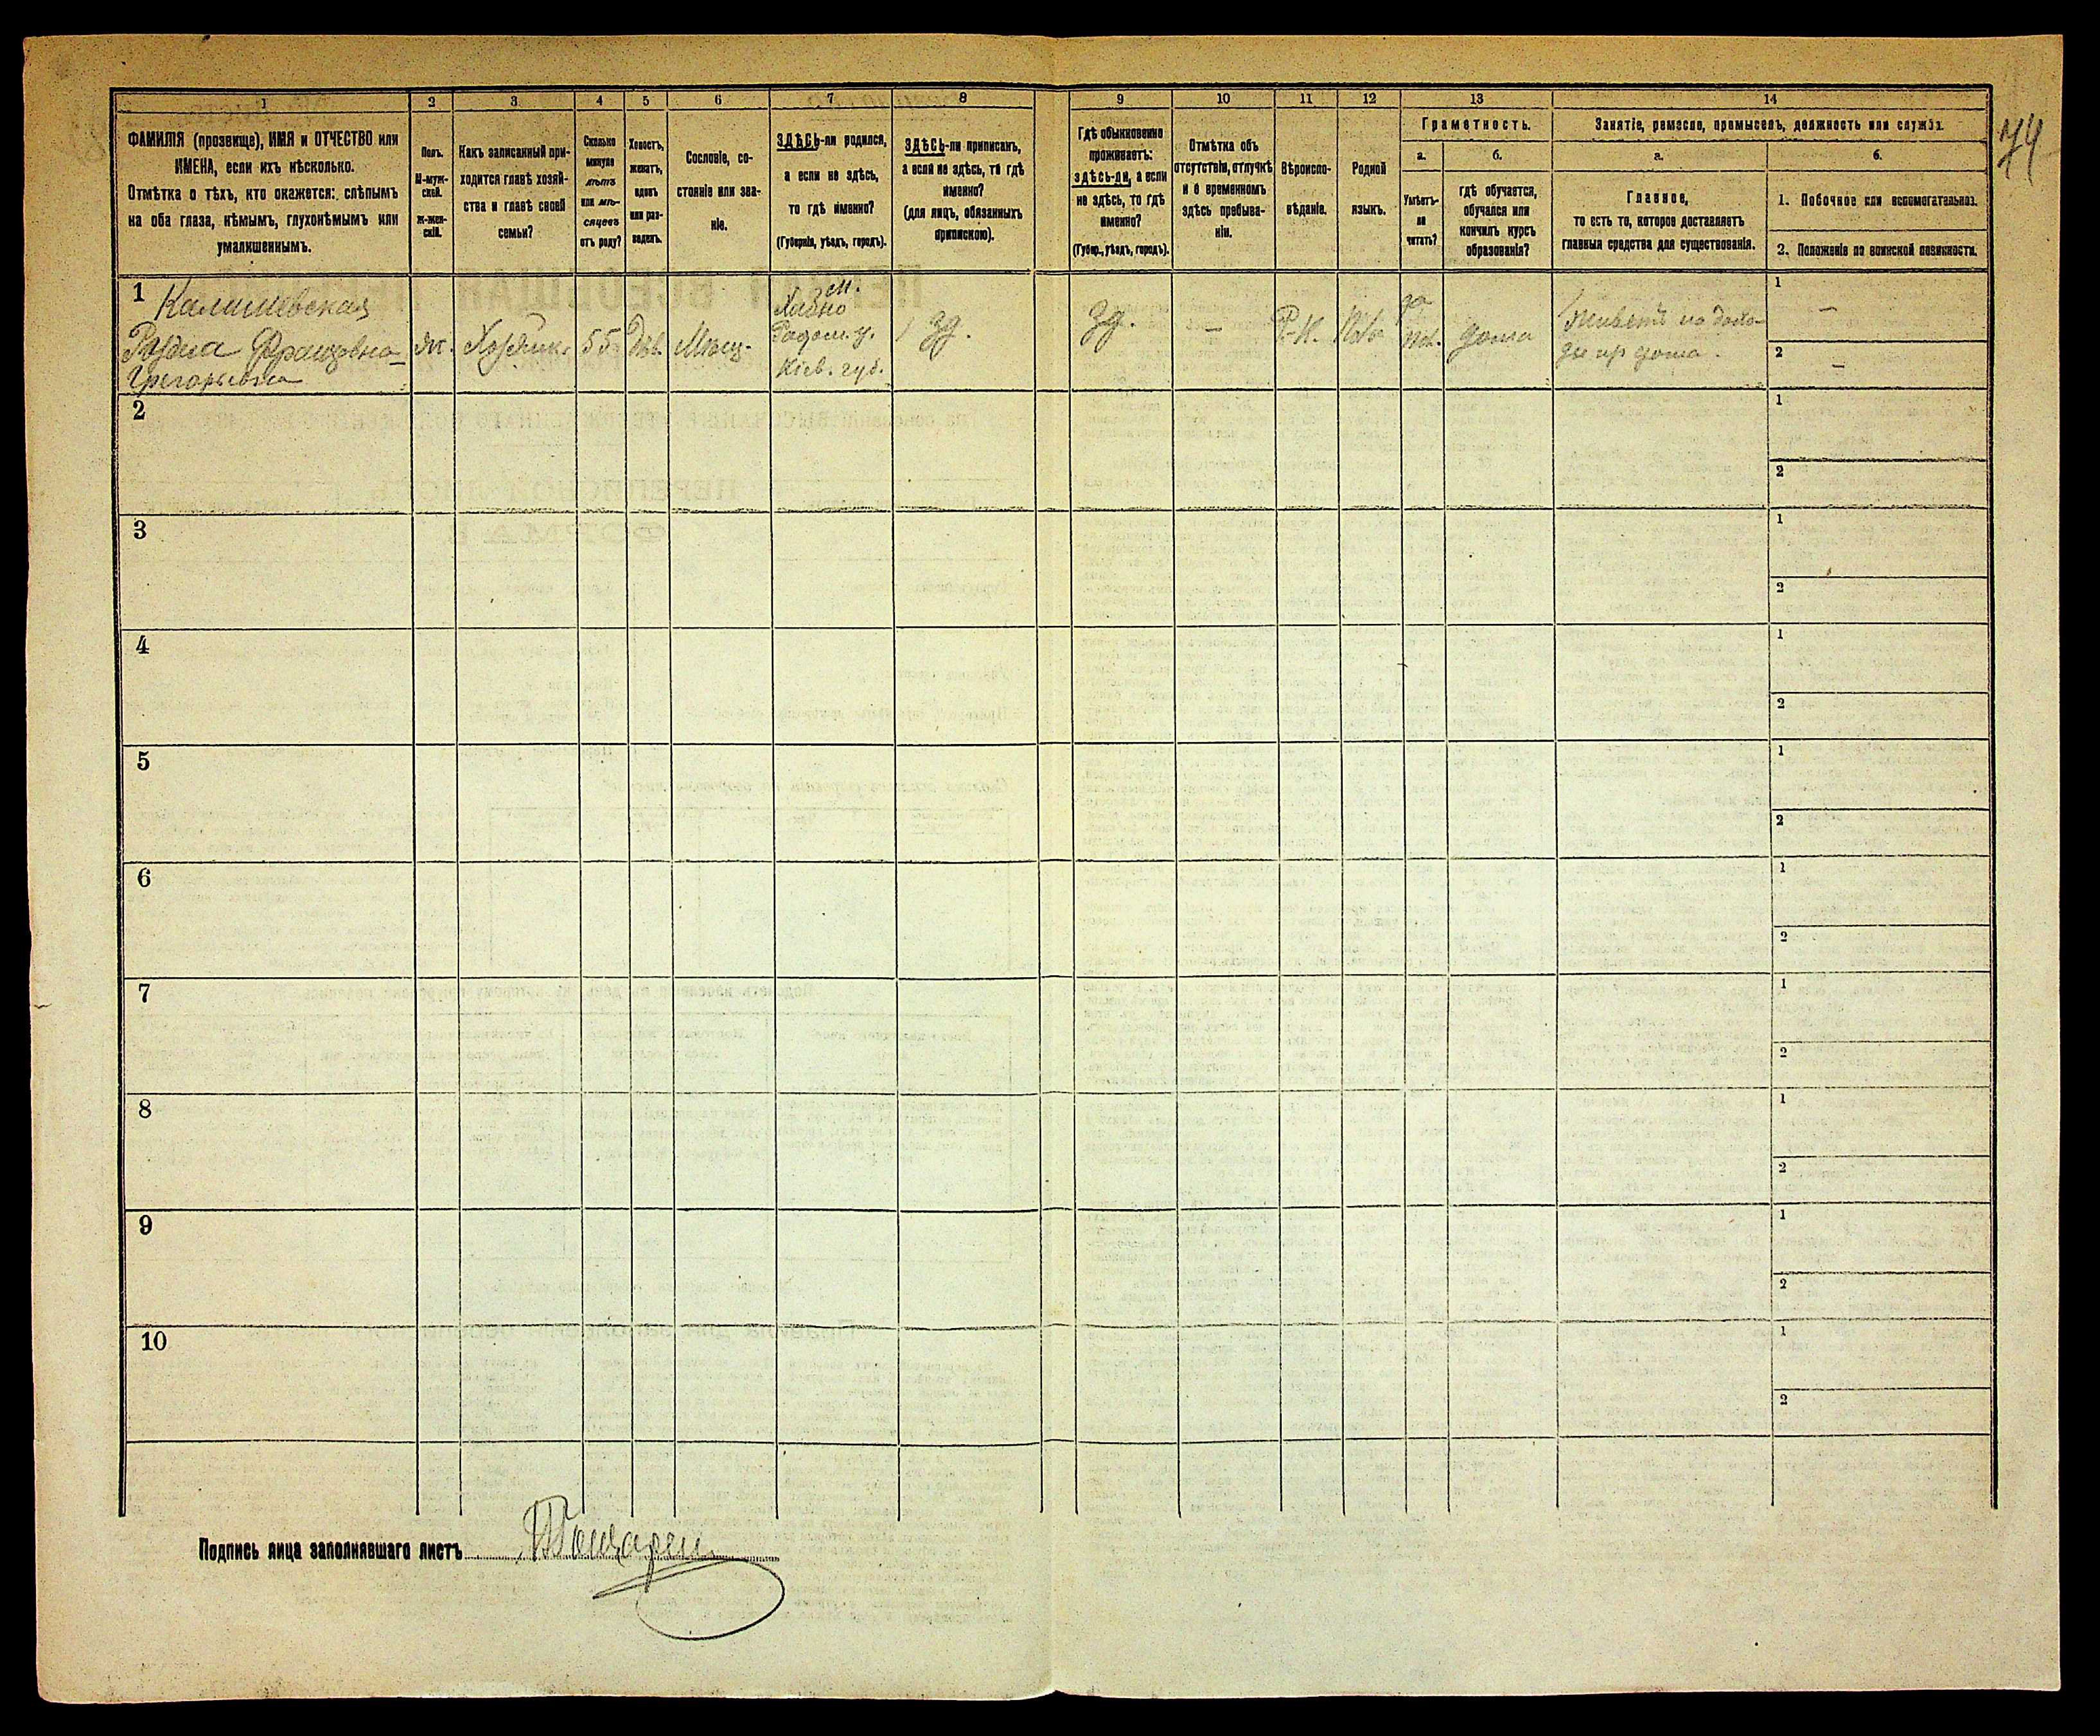 74
1
2
3
4
5
6
7
8
9
10
11
12
13
14
ФАМИЛІЯ (прозвище), ИМЯ и ОТЧЕСТВО или
ИМЕНА, если ихъ нѣсколько.
Отмѣтка о тѣхъ, кто окажется: слѣпымъ
на оба глаза, нѣмымъ, глухонѣмымъ или
умалишеннымъ.
Полъ.
М-муж-
ской.
Ж-жен-
скій.
Какъ записанный при-
ходится главѣ хозяй-
ства и главѣ своей
семьи?
Сколько
минуло
лѣтъ
или мѣ-
сяцевъ
отъ роду?
Холостъ,
женатъ,
вдовъ
или раз-
веденъ.
Сословіе, со-
стояніе или зва-
ніе.
ЗДѢСЬ-ли родился,
а если не здѣсь,
то гдѣ именно?
(Губернія, уѣздъ, городъ).
ЗДѢСЬ-ли приписанъ,
а если не здѣсь, то гдѣ
именно?
(для лицъ, обязанныхъ
припискою).
Гдѣ обыкновенно
проживаетъ:
здѣсь-ли, а если
не здѣсь, то гдѣ
именно?
(Губер., уѣздъ, городъ).
Отмѣтка объ
отсутствіи, отлучкѣ
и о временномъ
здѣсь пребыва-
ніи.
Вѣроиспо-
вѣданіе.
Родной
языкъ.
Грамотность.
а.
Умѣетъ-
ли
читать?
б.
гдѣ обучается,
обучался или
кончилъ курсъ
образованія?
Занятіе, ремесло, промыселъ, должность или служба.
а.
Главное,
то есть то, которое доставляетъ
главныя средства для существованія.
б.
1. Побочное или вспомогательное.
2. Положеніе по воинской повинности.
1
Калишевская
Францовна
Грегорьевна
ж.
Хозяйка
55
Дѣв.
Мѣщ.
м.
Хабно
Радом. у.
Кіев. губ.
зд.
зд.
—
Р-К.
Пол.
да
дома
Живетъ на дохо-
ды
1 —
2 —
2
1
2
3
1
2
4
1
2
5
1
2
6
1
2
7
1
2
8
1
2
9
1
2
10
1
2
Подпись лица заполнявшаго листъ